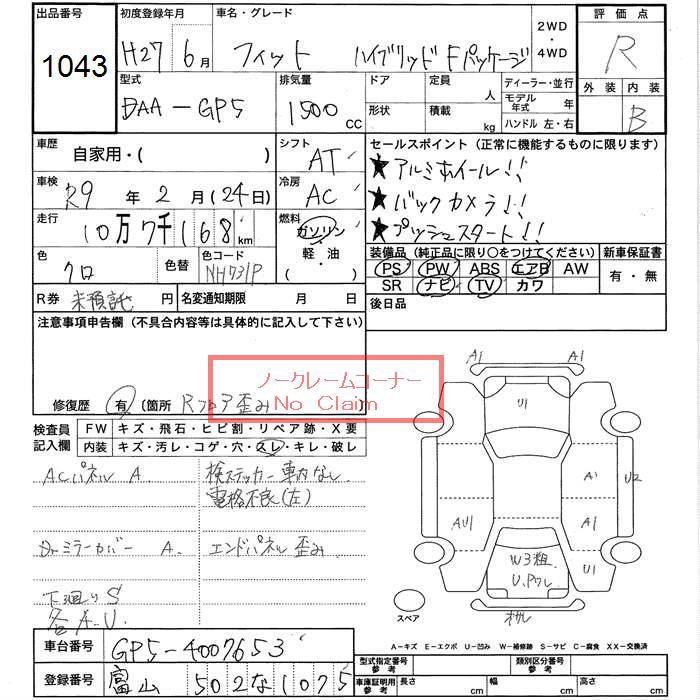 出品番号 初度登録年月 車名・グレード 2WD・4WD 評価点
1043 H27年6月 フィット ハイブリッド Fパッケージ R
型式 排気量 ドア 定員 ディーラー・並行 外装 内装
DAA-GP5 1500cc 人 モデル年式 年 B
形状 積載 kg ハンドル 左・右
車歴 自家用・( ) シフト AT セールスポイント(正常に機能するものに限ります)
車検 R9年2月(24日) 冷房 AC ★アルミホイール!!
★バックカメラ!!
走行 10万7千168km 燃料 ガソリン・軽・油・( ) ★プッシュスタート!!
色 クロ 色替 色コード NH731P 装備品(純正品に限り○をつけてください) 新車保証書
PS PW ABS エアB AW 有・無
SR ナビ TV カワ
R券 未預託 円 名変通知期限 月 日 後日品
注意事項申告欄(不具合内容等は具体的に記入して下さい)
ノークレームコーナー
No Claim
修復歴 有 〔箇所 Rフロア歪み 〕
検査員記入欄 FW キズ・飛石・ヒビ割・リペア跡・X要
内装 キズ・汚レ・コゲ・穴・スレ・キレ・破レ
ACパネル A 検ステッカー車内なし
電格不良(左)
Drミラーカバー A. エンドパネル歪み
下廻りS
各A.U
A1 A1
U1
A1 U2
AU1 A1
W3粗 U1
U.Pワレ
スペア
A-キズ E-エクボ U-凹み W-補修跡 S-サビ C-腐食 XX-交換済
車台番号 GP5-4007653 型式指定番号参考 類別区分番号参考
登録番号 富山 502 な 1075 車庫証明用参考 長さ cm 幅 cm 高さ cm